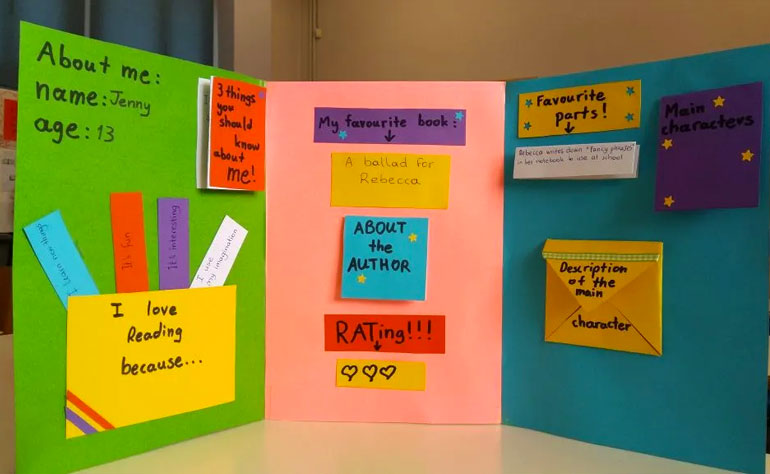 About me:
name: Jenny
age: 13
3 things
you
should
know
about
me!
I learn new things
It's fun
It's interesting
I use
my imagination
I love
Reading
because...
My favourite book:
A ballad for
Rebecca
ABOUT
the
AUTHOR
RATing!!!
Favourite
parts!
Rebecca writes down "fancy phrases"
in her notebook to use at school
Main
characters
Description
of the
main
character